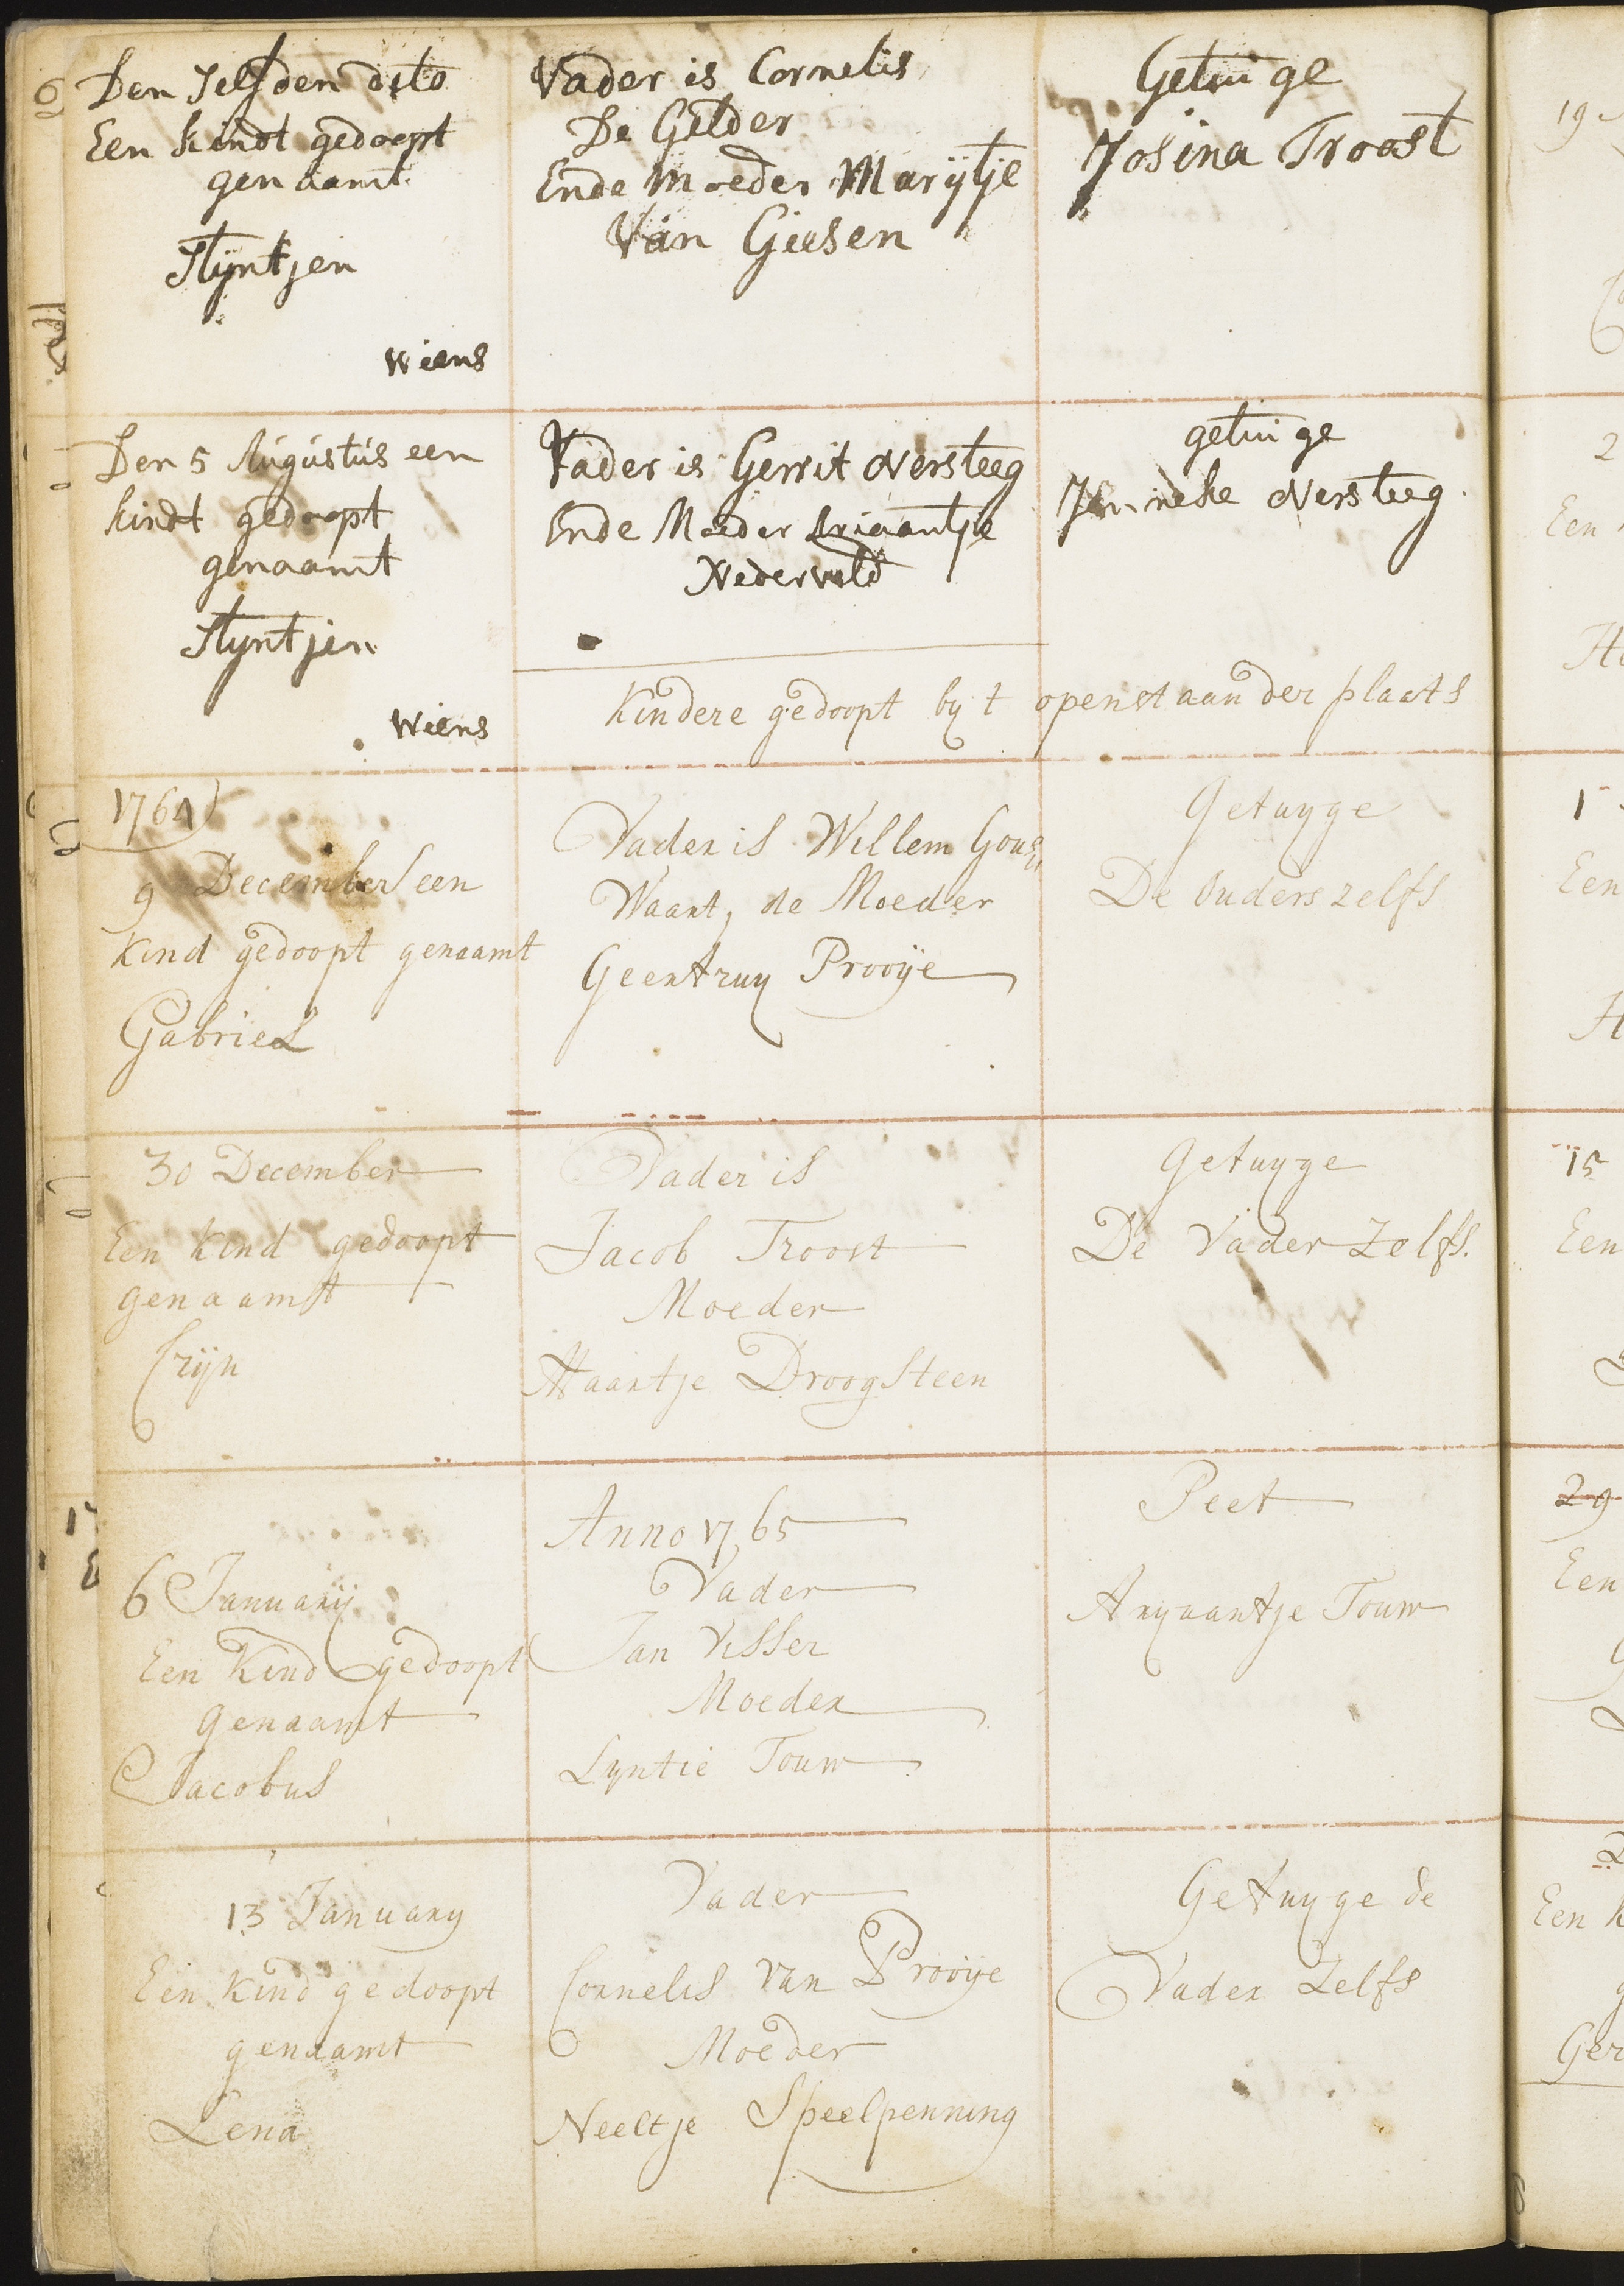 Den selfden dito
Een kindt gedoopt
genaamt
Styntjen
wiens
Vader is Cornelis
De Gelder
Ende Moeder Marijtje
Van Giesen
Getuige
Josina Troost
Den 5 Augustus een
kindt gedoopt
genaamt
Styntjen
wiens
Vader is Gerrit Versteeg
Ende Moeder Ariaantje
Nederveld
getuige
Janneke Versteeg
Kindere gedoopt by t openstaan der plaats
1764
9 December een
Kind gedoopt genaamt
Gabriel
Vader is Willem Gous„
Waart, de Moeder
Geertruy Prooije
Getuyge
De Ouders zelfs
30 December
Een Kind gedoopt
genaamt
Crijn
Vader is
Jacob Troost
Moeder
Maartje Droogsteen
Getuyge
De Vader Zelfs.
6 Januarij
Een Kind gedoopt
Genaamt
Jacobus
Anno 1765
Vader
Jan Visser
Moeder
Lyntie Touw
Peet
Aryaantje Touw
13 January
Een Kind gedoopt
genaamt
Lena
Vader
Cornelis Van Prooije
Moeder
Neeltje Speelpenning
Getuyge de
Vader Zelfs
19
2
Een
1
Een
15
Een
29
Een
Een K
Ger